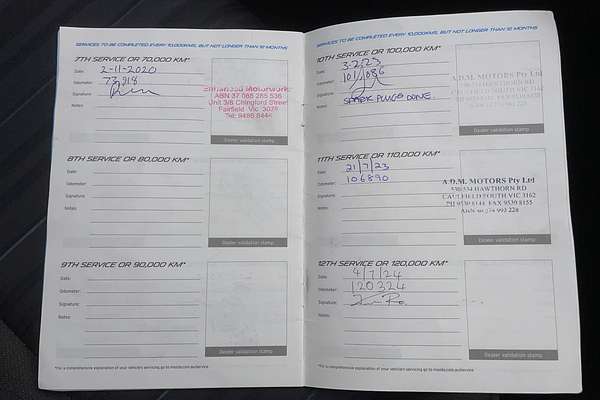 SERVICES TO BE COMPLETED EVERY 10,000KMS, BUT NOT LONGER THAN 12 MONTHS
7TH SERVICE OR 70,000 KM*
Date: 2-11-2020
Odometer: 73,918
Signature:
Notes:
Enhanced Motorworks
ABN 37 065 265 536
Unit 3/8 Chingford Street
Fairfield Vic 3078
Tel: 9486 8444
Dealer validation stamp
8TH SERVICE OR 80,000 KM*
Date:
Odometer:
Signature:
Notes:
Dealer validation stamp
9TH SERVICE OR 90,000 KM*
Date:
Odometer:
Signature:
Notes:
Dealer validation stamp
*For a comprehensive explanation of your vehicle's servicing go to mazda.com.au/service
SERVICES TO BE COMPLETED EVERY 10,000KMS, BUT NOT LONGER THAN 12 MONTHS
10TH SERVICE OR 100,000 KM*
Date: 3-2-23
Odometer: 101,086
Signature:
Notes: SPARK PLUGS DONE.
A.D.M. MOTORS Pty Ltd
Dealer validation stamp
11TH SERVICE OR 110,000 KM*
Date: 21/7/23
Odometer: 106890
Signature:
Notes:
A.D.M. MOTORS Pty Ltd
530/534 HAWTHORN RD
CAULFIELD SOUTH VIC 3162
PH 9530 8144 FAX 9530 8155
Dealer validation stamp
12TH SERVICE OR 120,000 KM*
Date: 4/7/24
Odometer: 120324
Signature:
Notes:
Dealer validation stamp
*For a comprehensive explanation of your vehicle's servicing go to mazda.com.au/service